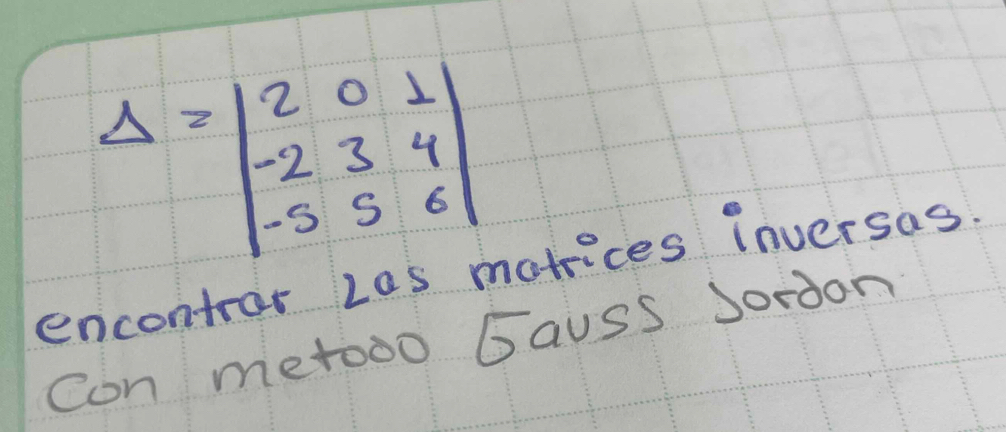 Δ = | 2 0 1 |
| -2 3 4 |
| -5 5 6 |
encontrar Las matrices inversas.
Con metodo Gauss Jordan